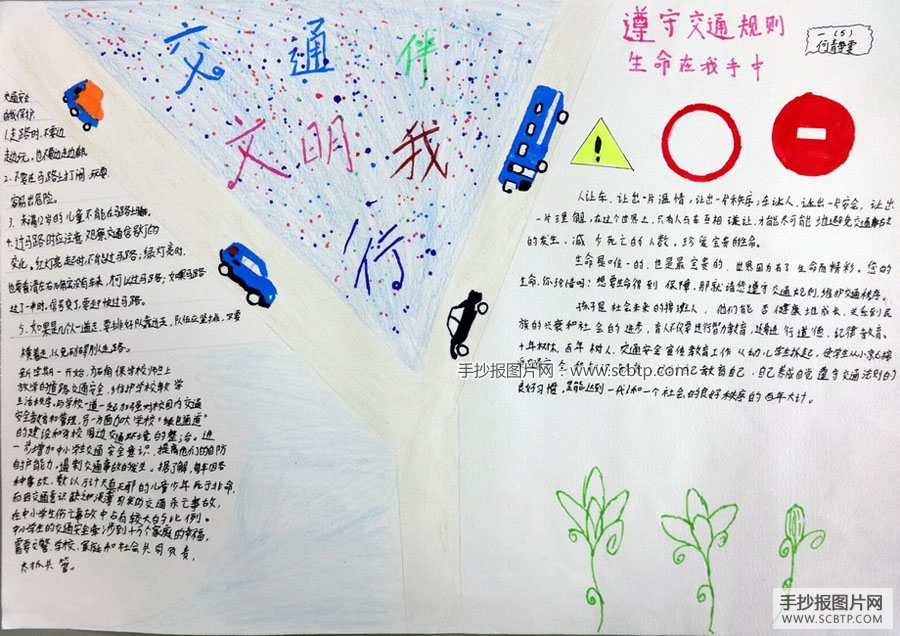 交通伴
文明我
行
遵守交通规则
生命在我手中
一(5)
交通安全
自我保护
1.走路时,不要边
走边玩,也不要边走边
2.不要在马路上打闹、玩耍
容易出危险。
3.未满12岁的儿童不能在马路上骑
4.过马路时应注意观察交通信号灯的
变化,红灯亮起时,不能过马路,绿灯亮时,
也要看清左右两侧没有车来,才可以过马路;如果马路
过了一半时,信号变了,要赶快过马路。
5.如果是几个人一道走,要排好队靠边走,队伍应竖排,不要
横着走,以免妨碍别人走路。
新学期一开始,为确保学校师生上
放学的道路交通安全,维护学校教学
生活秩序,与学校一道一起加强对校园内交通
安全教育和管理,另一方面加大学校"绿色通道"
的建设和学校周边交通环境的整治。进
一步增加中小学生交通安全意识,提高他们的自防
自护能力。遏制交通事故的发生。据了解,每年因各
种事故,数以万计天真无邪的儿童少年死于非命,
而因交通意识缺乏和淡薄引发的交通死亡事故,
在中小学生伤亡事故中占有较大的比例。
中小学生的交通安全牵涉到千万个家庭的幸福,
需要交警、学校、家庭和社会共同负责,
齐抓共管。
人让车,让出一片温情,让出一片秩序;车让人,让出一片安全,让出
一片理解,在这个世界上,只有人与车互相谦让,才能尽可能地避免交通事故
的发生,减少死亡的人数,珍爱宝贵的生命。
生命是唯一的,也是最宝贵的,世界因为有了生命而精彩。您的
生命,你珍惜吗?想要生命得到保障,那就请您遵守交通规则,维护交通秩序。
孩子是社会未来的接班人,他们能否健康地成长,关系到民
族的兴衰和社会的进步,育人不仅要进行智力教育,还要进行道德、纪律教育。
十年树木,百年树人,交通安全宣传教育工作从幼儿学生抓起,使学生从小
自己教育自己,自己养成自觉遵守交通法则的
良好习惯,就能达到一代人和一个社会的良好秩序的百年大计。
手抄报图片网:www.scbtp.com
手抄报图片网
WWW.SCBTP.COM